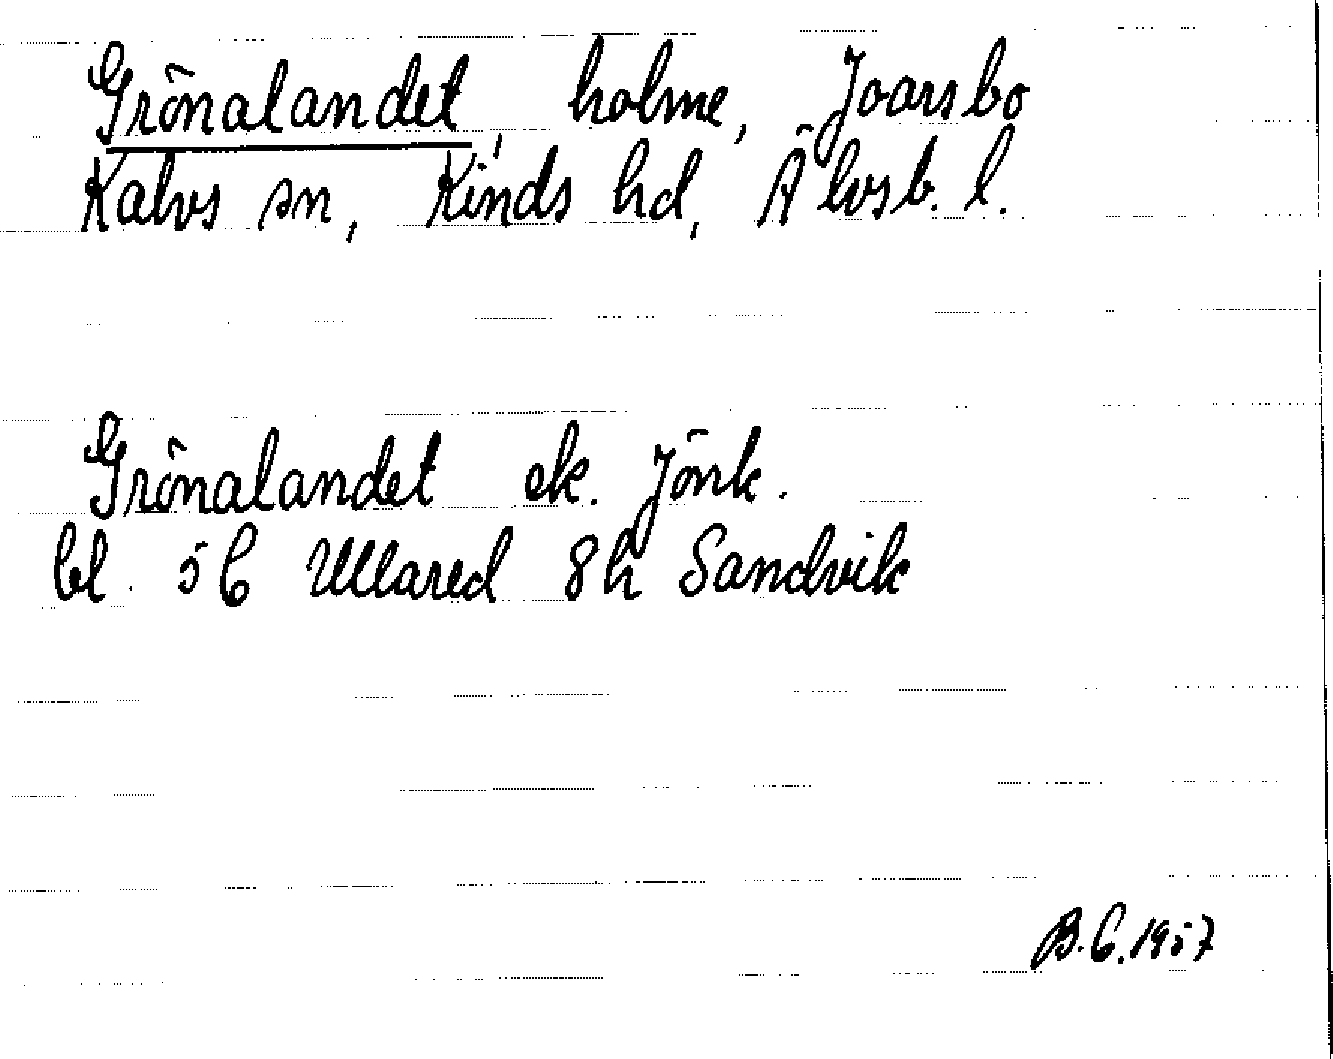 Grönalandet, holme, Joarsbo
Kalvs sn, Kinds hd, Älvsb. l.
Grönalandet ek. Jönk.
bl. 5C Ullared 8h Sandvik
B.C. 1957